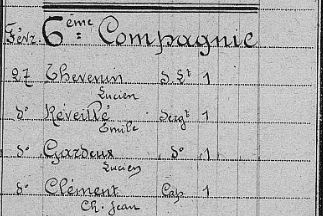 Févr. 6ème Compagnie
27 Thevenin S Lt 1
Lucien
do Réveillé Sergt 1
Emile
do Gardeux do 1
Lucien
do Clément Cap 1
Ch. Jean